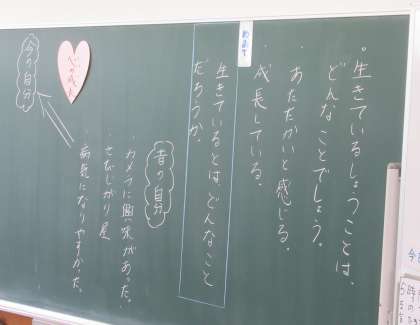 。生きているしょうことは、
どんなことでしょう。
・あたたかいと感じる。
・成長している。
めあて
生きているとは、どんなこと
だろうか。
昔の自分
・カメラに興味があった。
・さむしがり屋
・病気になりやすかった。
心の成長
今の自分